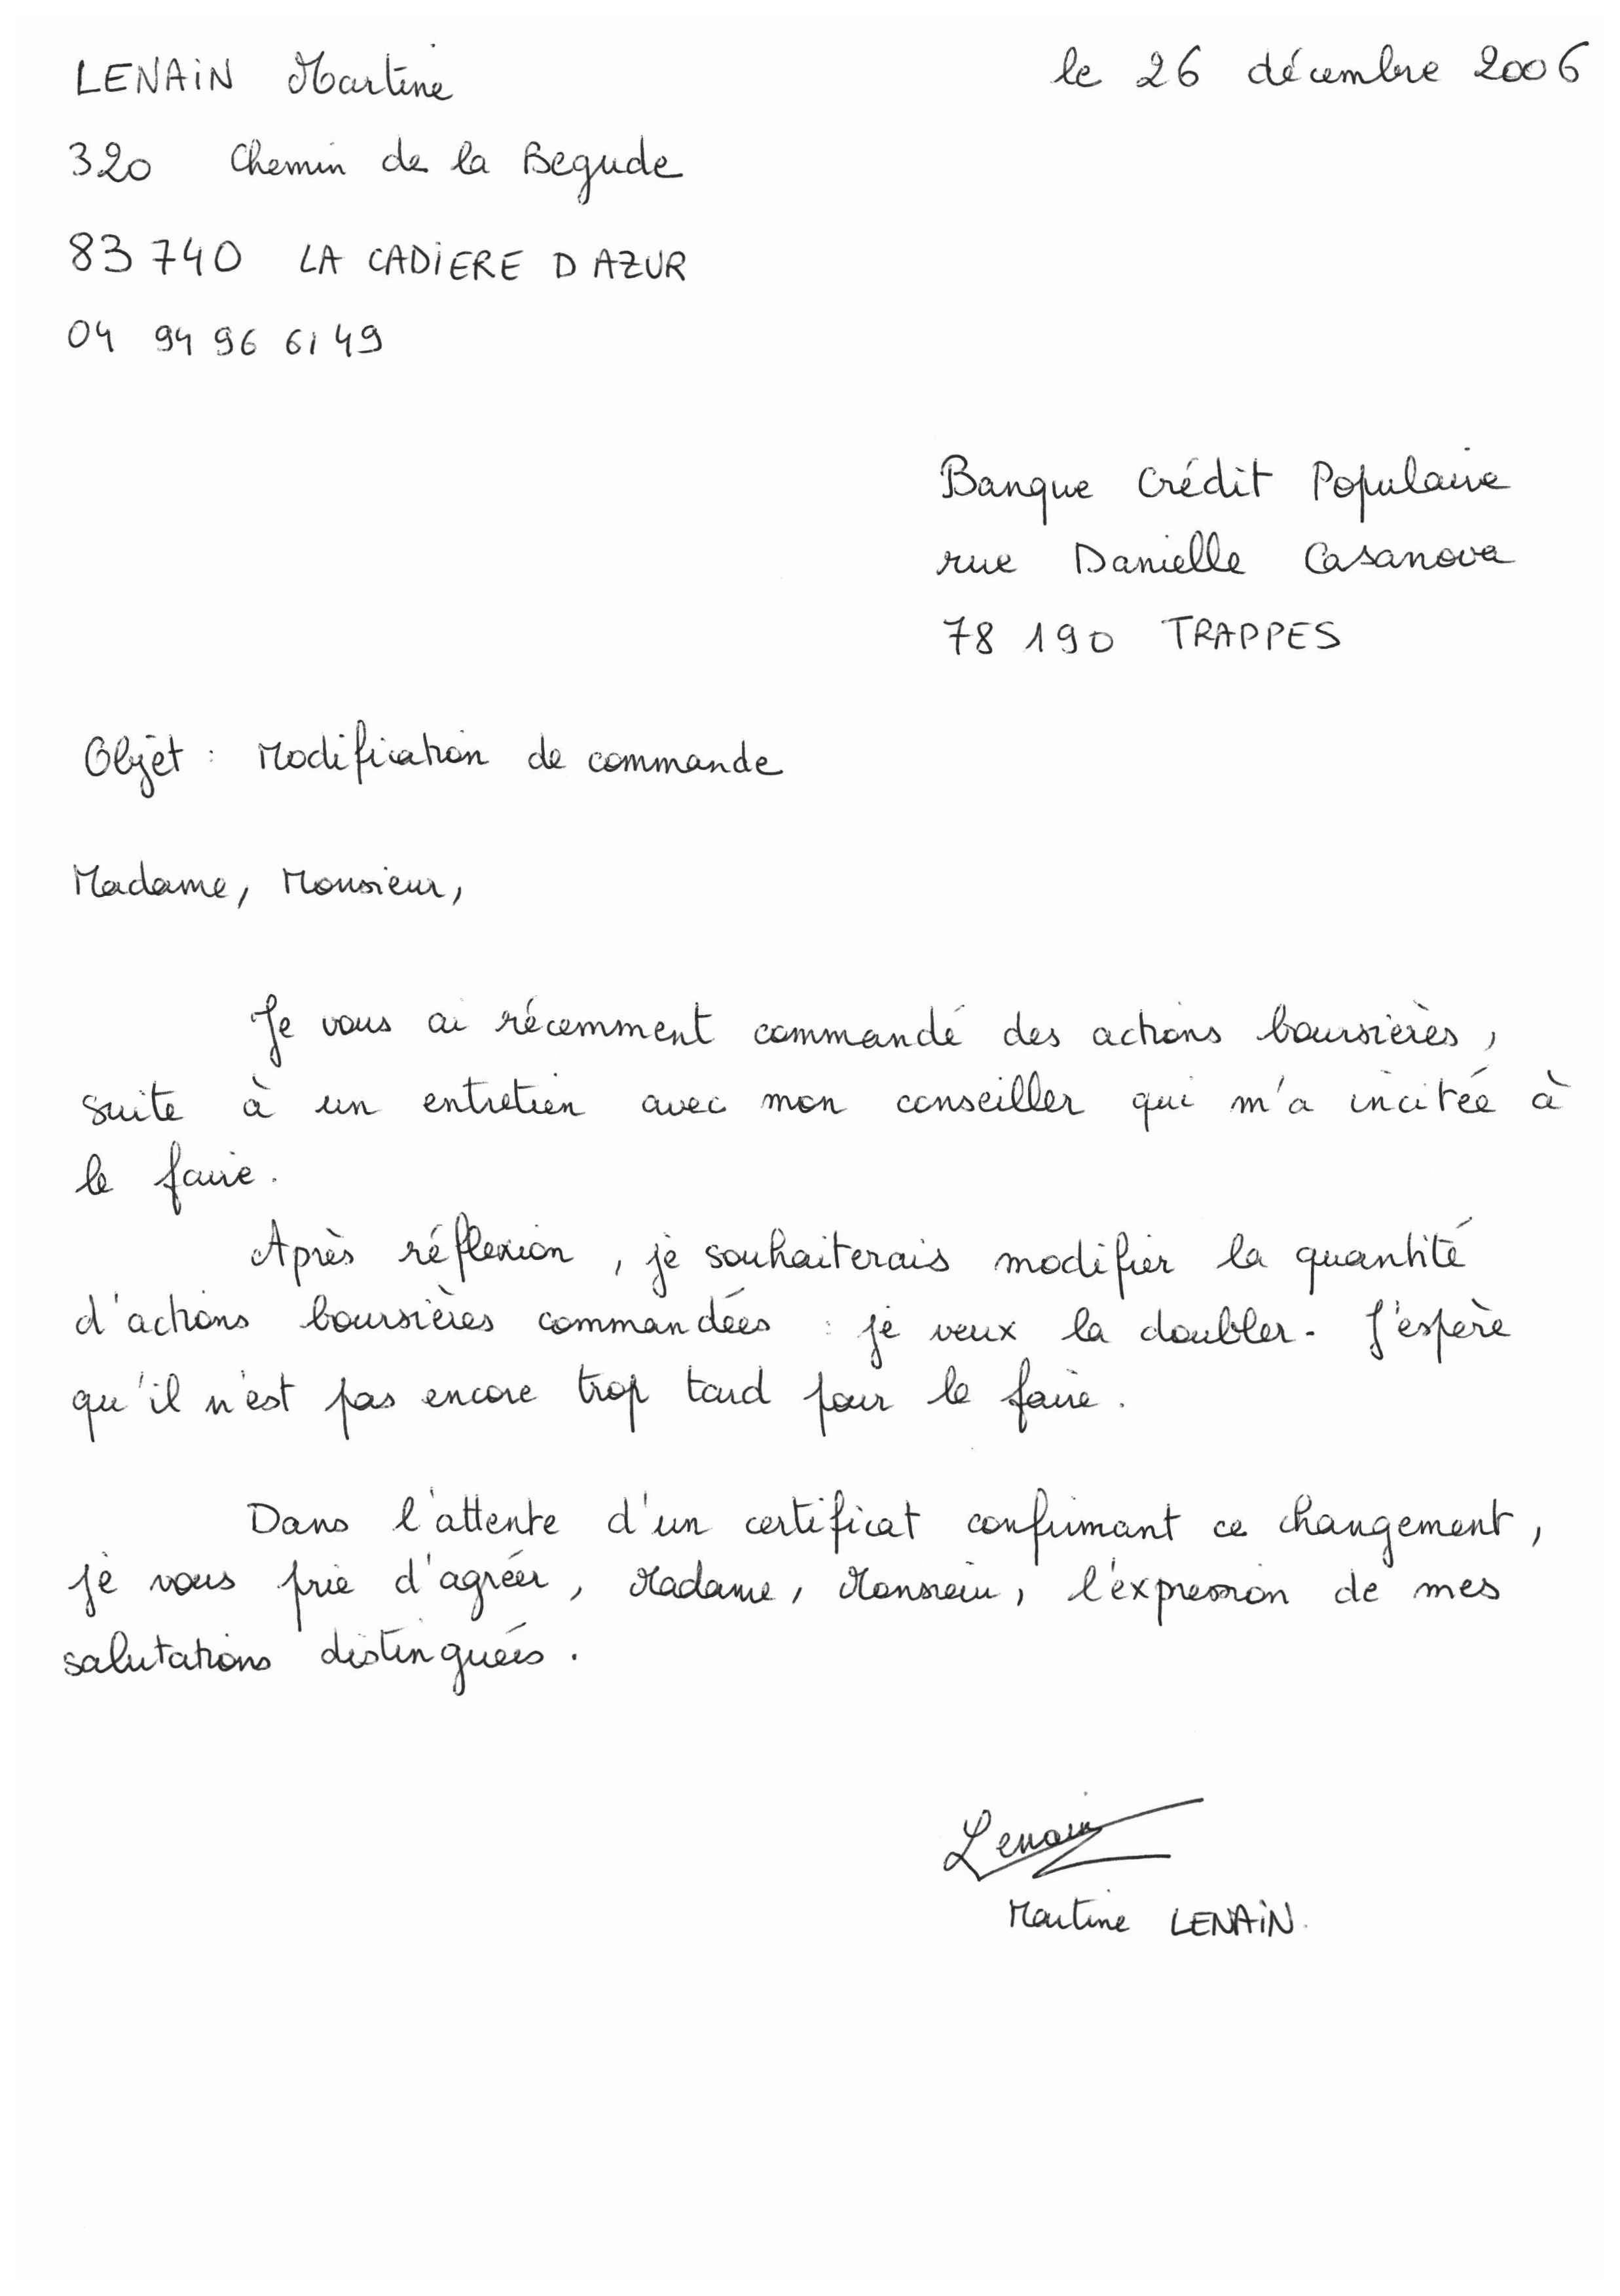 LENAIN Martine
le 26 décembre 2006
320 Chemin de la Begude
83 740 LA CADIERE D AZUR
04 94 96 61 49
Banque Crédit Populaire
rue Danielle Casanova
78 190 TRAPPES
Objet : Modification de commande
Madame, Monsieur,
Je vous ai récemment commandé des actions boursières,
suite à un entretien avec mon conseiller qui m'a incitée à
le faire.
Après réflexion, je souhaiterais modifier la quantité
d'actions boursières commandées : je veux la doubler. J'espère
qu'il n'est pas encore trop tard pour le faire.
Dans l'attente d'un certificat confirmant ce changement,
je vous prie d'agréer, Madame, Monsieur, l'expression de mes
salutations distinguées.
Lenain
Martine LENAIN.